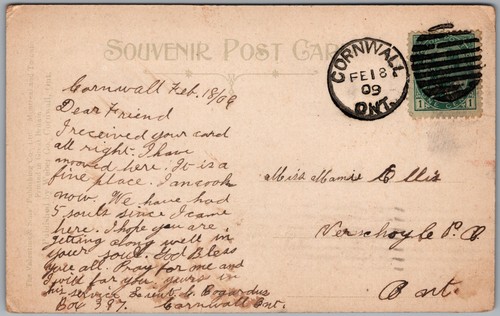 SOUVENIR POST CARD
CORNWALL
FE 18
09
ONT.
1 1
Cornwall Feb. 18/09
Dear Friend
I received your card
all right. I have
mooved here. It is a
fine place. I am cook
now. We have had
5 souls since I came
here. I hope you are
getting along well in
your soul. God Bless
you all. Pray for me and
I will for you. yours in
his service Lieut. C. Bogardus
Box 397. Cornwall Ont.
Miss Mamie Ellis
Verschoyle P. O.
Ont.